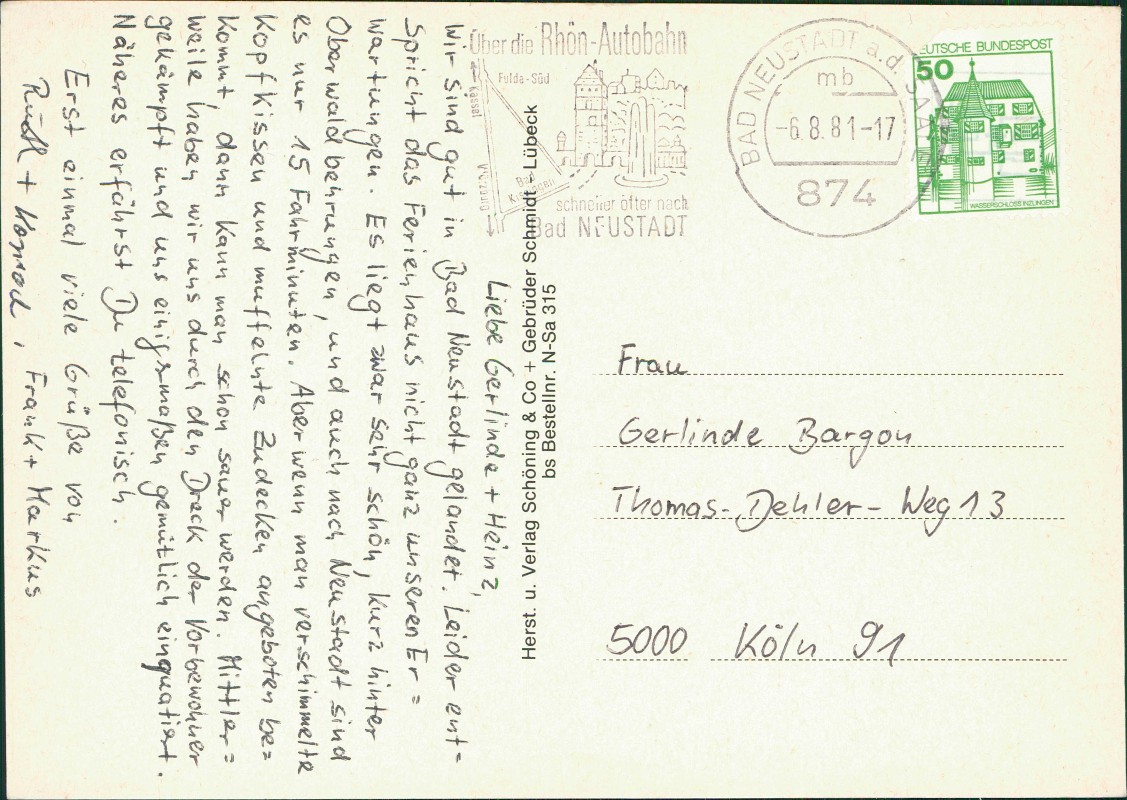 Liebe Gerlinde + Heinz,
wir sind gut in Bad Neustadt gelandet. Leider ent=
spricht das Ferienhaus nicht ganz unseren Er=
wartungen. Es liegt zwar sehr schön, kurz hinter
Oberwaldbehrungen, und auch nach Neustadt sind
es nur 15 Fahrminuten. Aber wenn man verschimmelte
Kopfkissen und muffelnte Zudecken angeboten be=
kommt, dann kann man schon sauer werden. Mittler=
weile haben wir uns durch den Dreck der Vorbewohner
gekämpft und uns einigermaßen gemütlich einquatiert.
Näheres erfährst Du telefonisch.
Erst einmal viele Grüße von
Ruth + Konrad, Frank + Markus
Herst. u. Verlag Schöning & Co + Gebrüder Schmidt, Lübeck
bs Bestellnr. N-Sa 315
Über die Rhön-Autobahn
Fulda-Süd
Kassel
Würzburg
Bad
Kissingen
schneller öfter nach
Bad NEUSTADT
BAD NEUSTADT a.d. SAALE
mb
-6.8.81-17
874
DEUTSCHE BUNDESPOST
50
WASSERSCHLOSS INZLINGEN
Frau
Gerlinde Bargon
Thomas-Dehler-Weg 13
5000 Köln 91